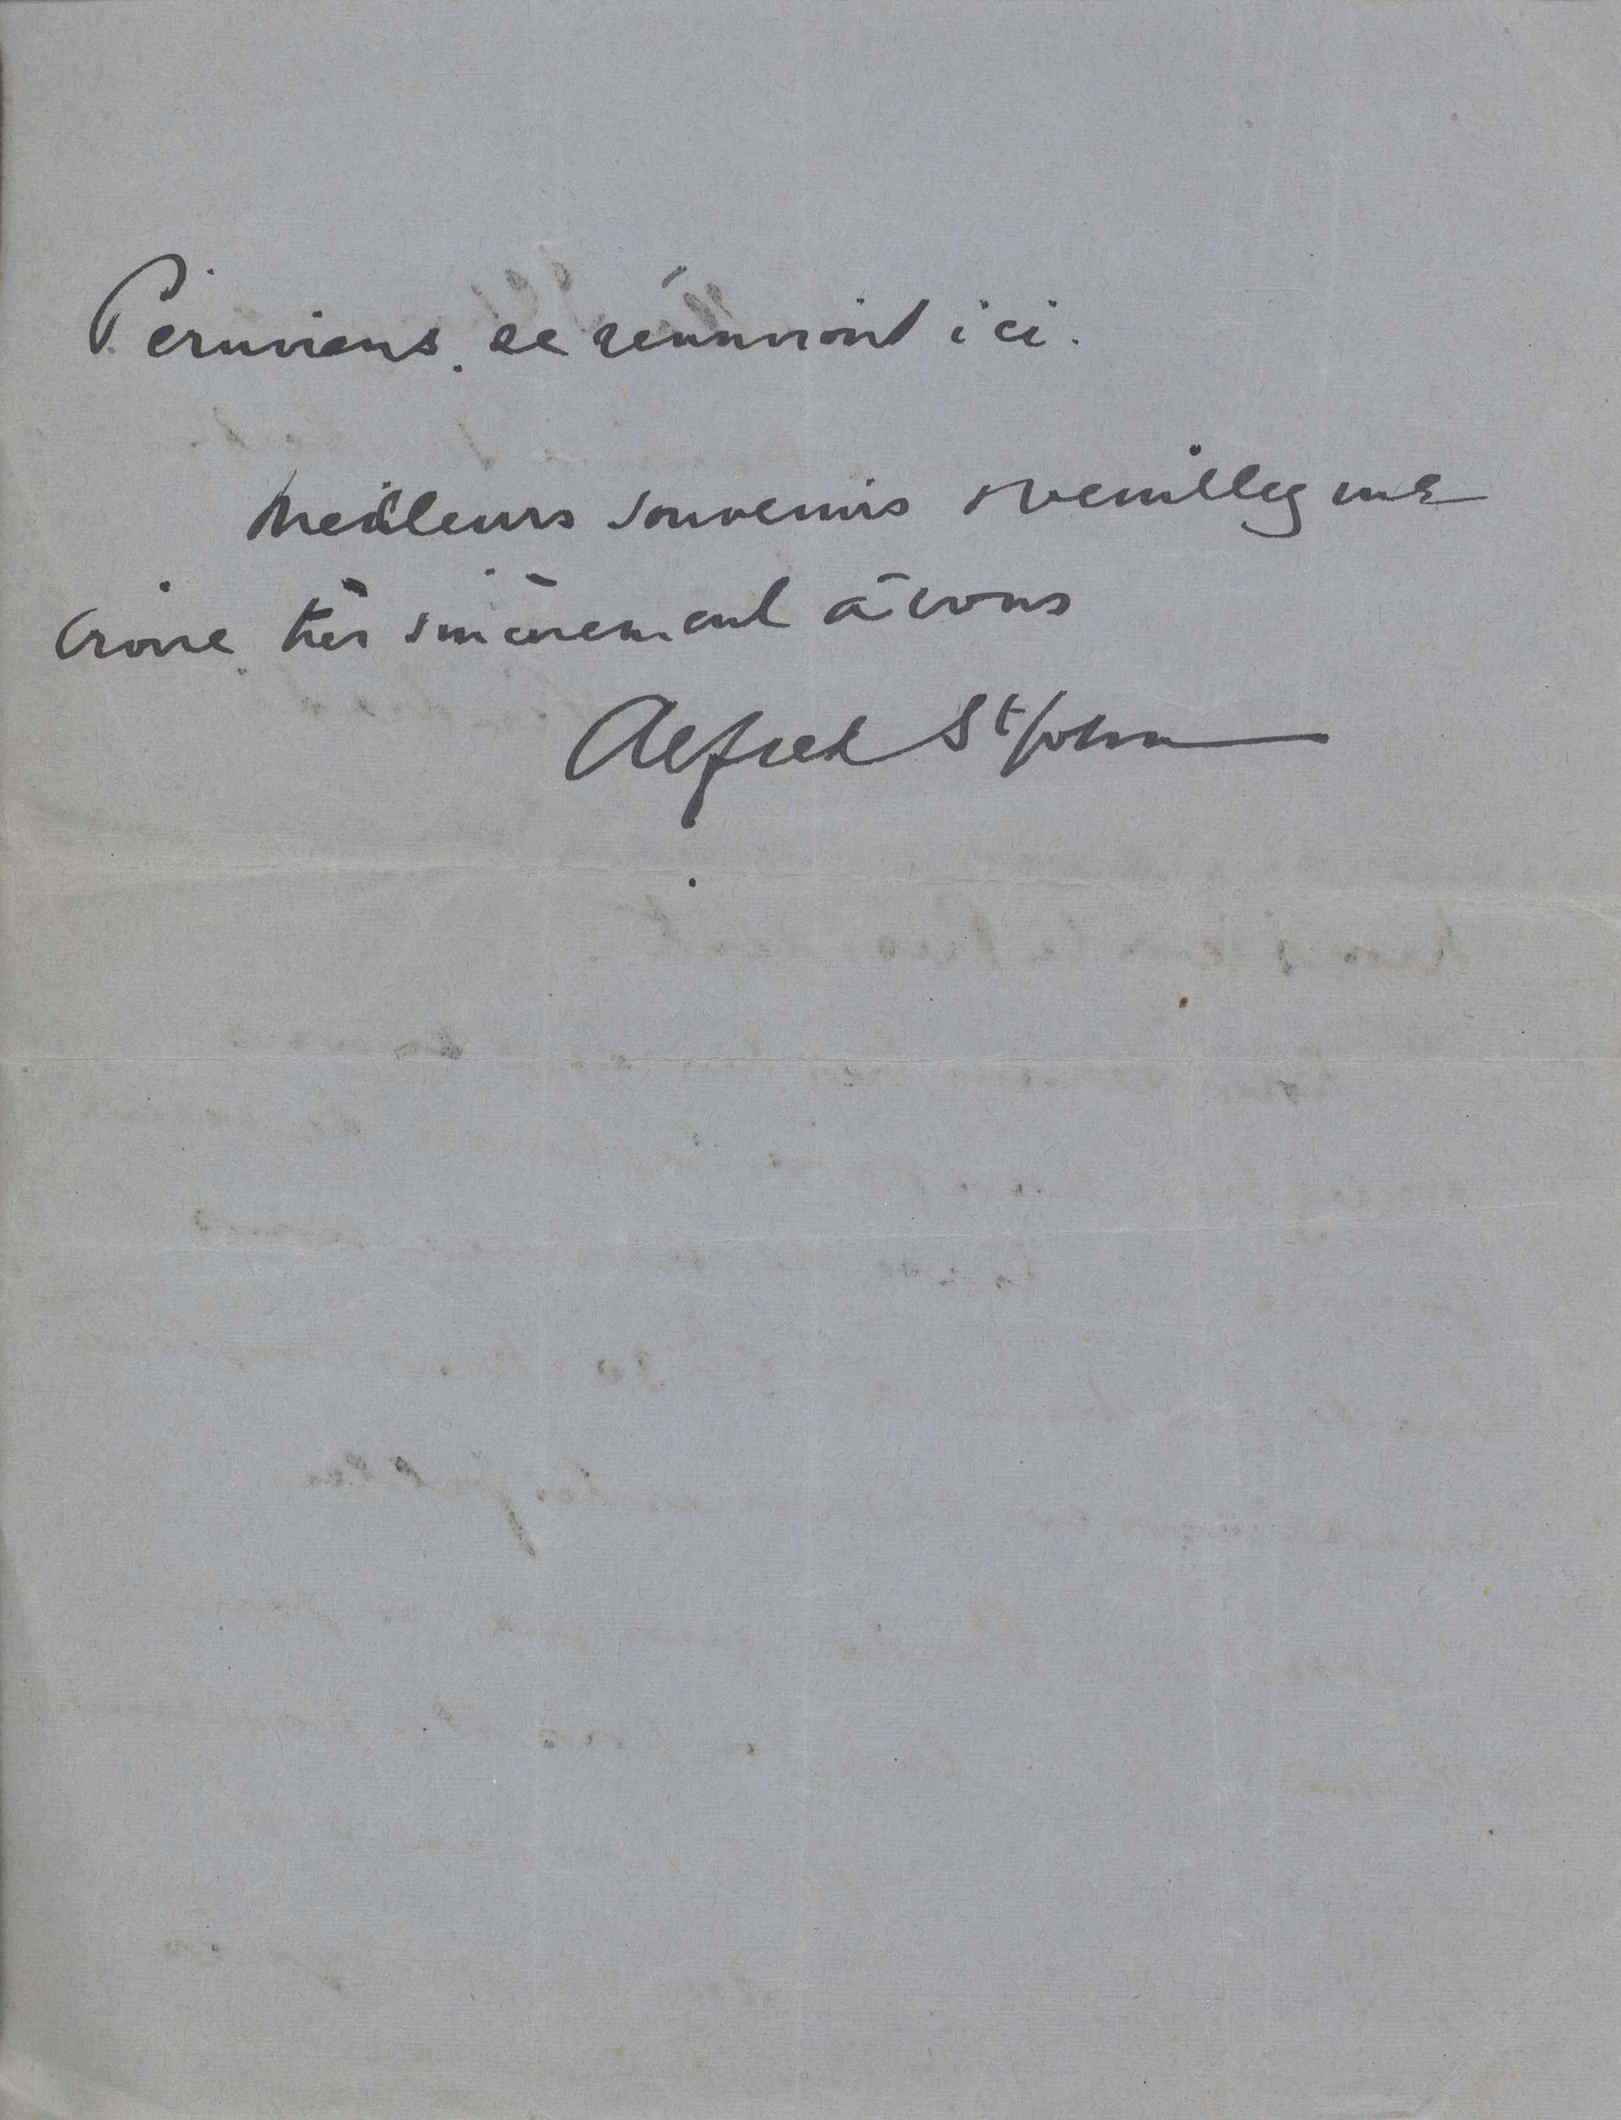 Peruviens se réuniront ici.
Meilleurs souvenirs & veuillez me
croire très sincèrement à vous
Alfred St John